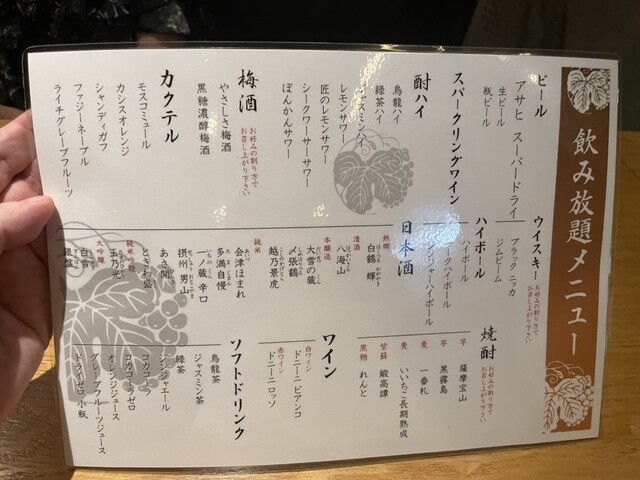 飲み放題メニュー
ビール
アサヒ スーパードライ
生ビール
瓶ビール
スパークリングワイン
酎ハイ
烏龍ハイ
緑茶ハイ
レモンサワー
匠のレモンサワー
シークワーサーサワー
ぽんかんサワー
梅酒
お好みの割り方で
お召し上がり下さい
やさしさ梅酒
黒糖濃醇梅酒
カクテル
モスコミュール
カシスオレンジ
シャンディガフ
ファジーネーブル
ライチグレープフルーツ
ウイスキー
お好みの割り方で
お召し上がり下さい
ブラックニッカ
ジムビーム
ハイボール
ハイボール
ジンジャーハイボール
日本酒
熱燗
白鶴 輝
清酒
八海山
本醸造
大雪の蔵
〆張鶴
越乃景虎
純米
会津ほまれ
多満自慢
一ノ蔵 辛口
摂州 男山
あさ開
純米吟醸
玉乃光
大吟醸
白雪
焼酎
お好みの割り方で
お召し上がり下さい
芋 薩摩宝山
芋 黒霧島
麦 一番札
麦 いいちこ長期熟成
紫蘇 鍛高譚
黒糖 れんと
ワイン
白ワイン
ドニーニ ビアンコ
赤ワイン
ドニーニ ロッソ
ソフトドリンク
烏龍茶
ジャスミン茶
緑茶
ジンジャエール
コカコーラ
コカコーラゼロ
オレンジジュース
グレープフルーツジュース
ドライゼロ 小瓶